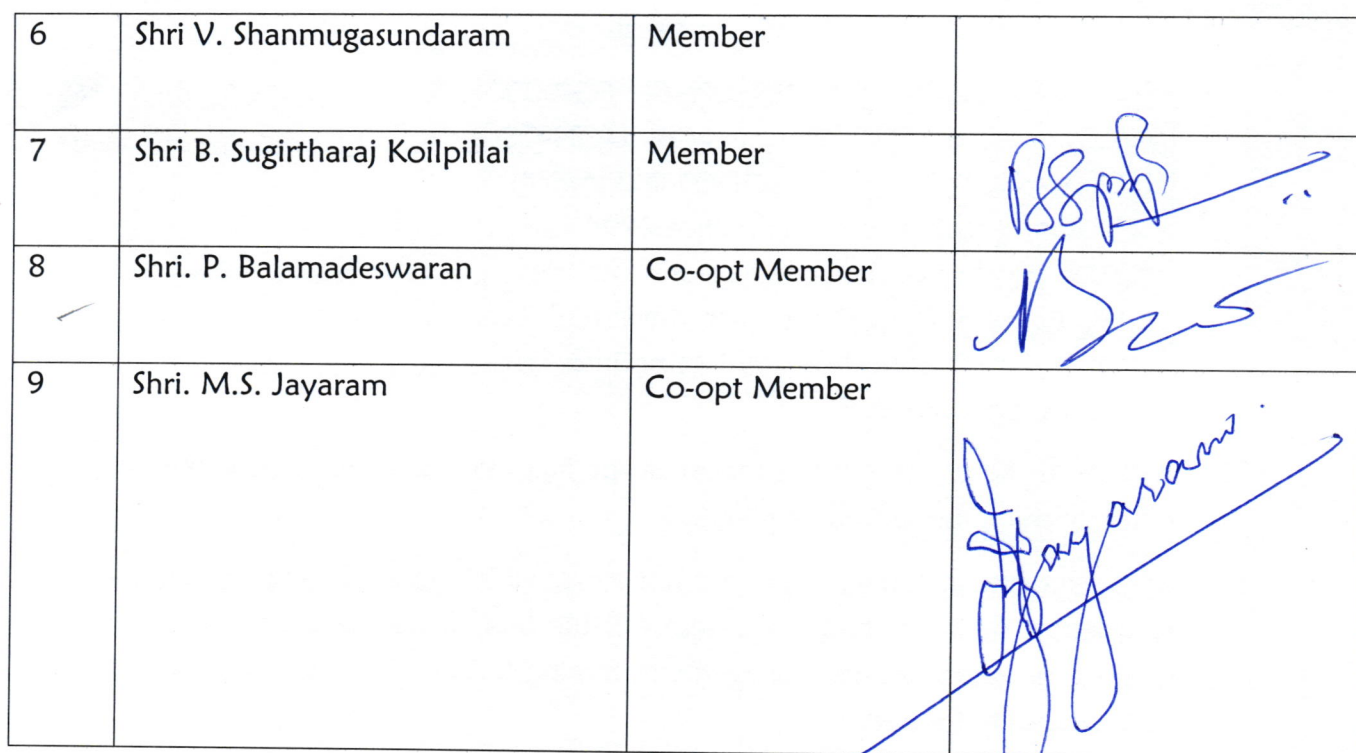 6 Shri V. Shanmugasundaram Member
7 Shri B. Sugirtharaj Koilpillai Member
8 Shri. P. Balamadeswaran Co-opt Member
9 Shri. M.S. Jayaram Co-opt Member
Jayaram